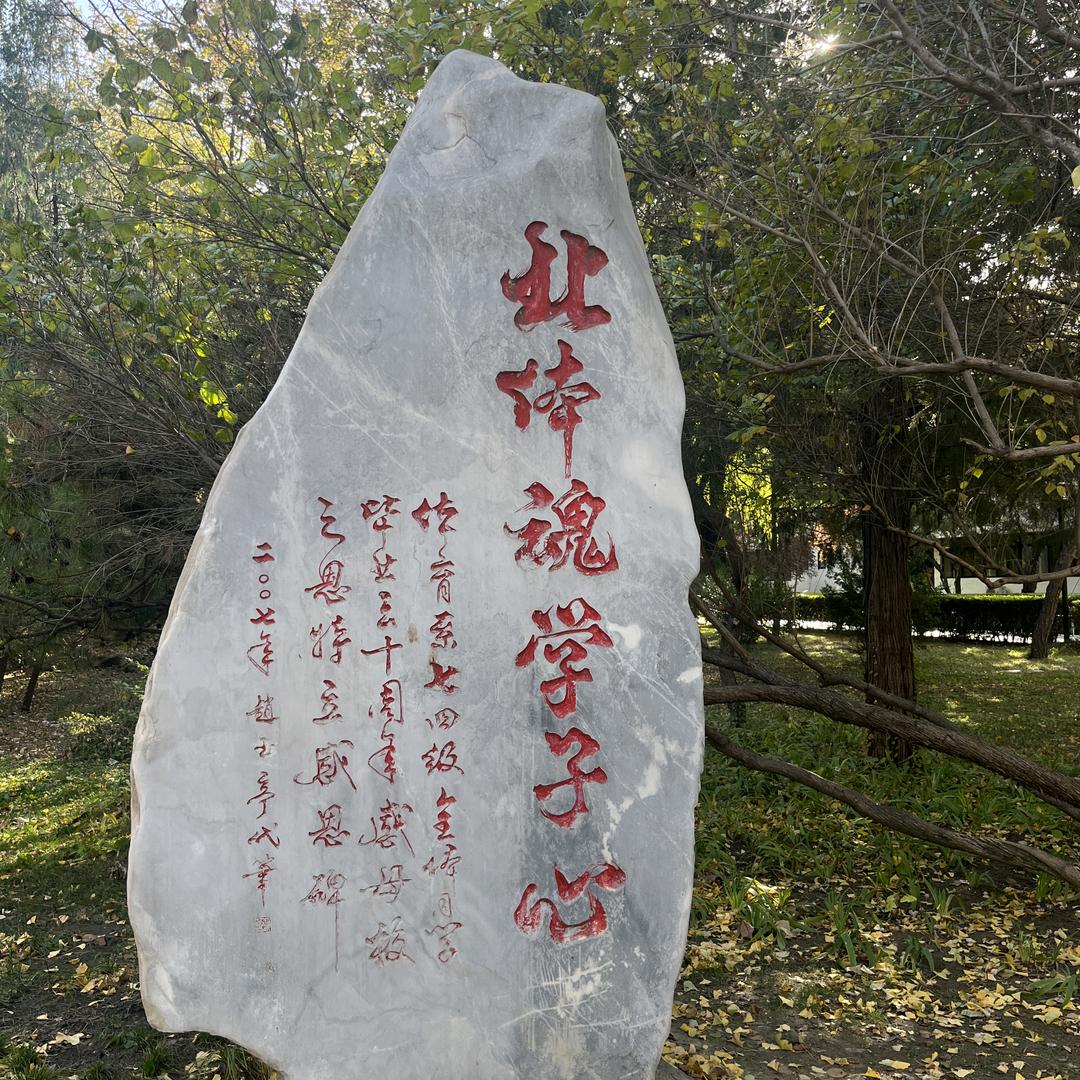 北体魂学子心
体育系七四级全体同学
毕业三十周年感母校
之恩特立感恩碑
二〇〇七年 趙玉亭代筆